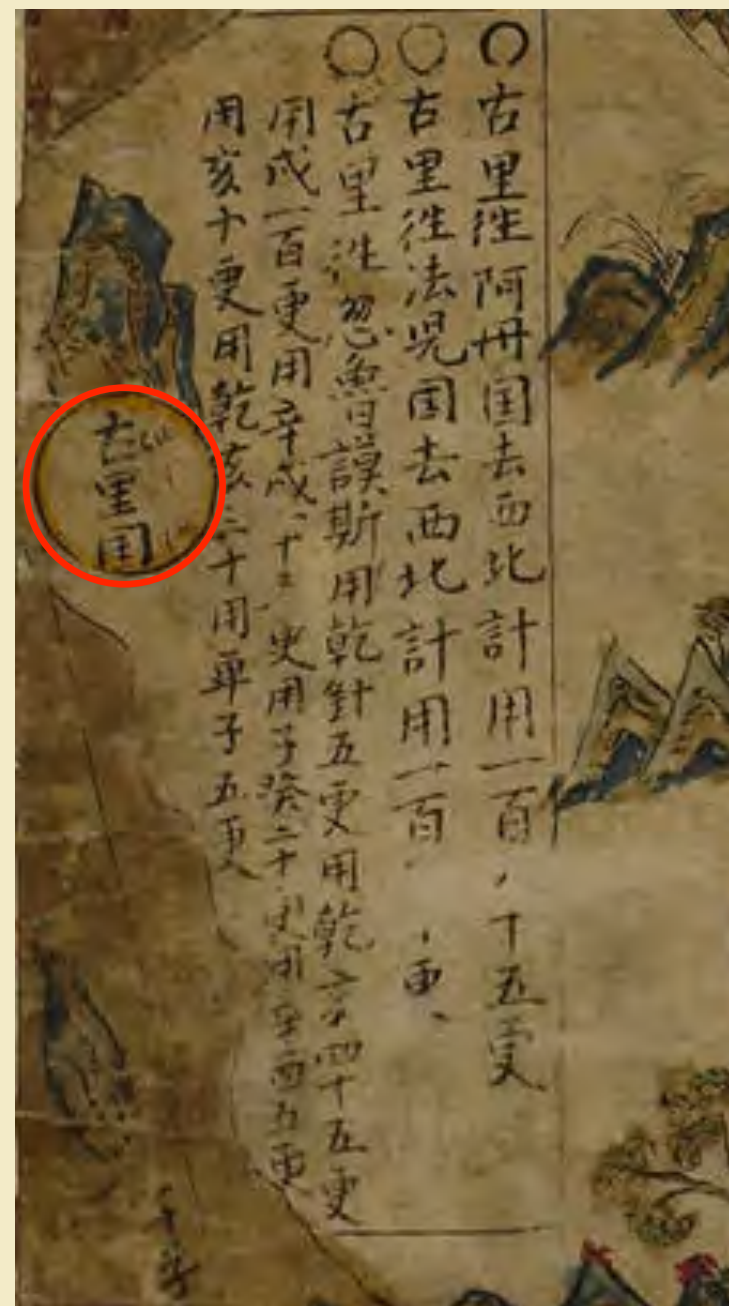 〇古里往阿丹国去西北計用一百、十五更
〇古里往法児国去西北計用一百、、更
〇古里往忽魯謨斯用乾針五更用乾亥四十五更
用戌一百更用辛戌、十三更用子癸二十更用辛酉五更
用亥十更用乾亥二十用單子五更
古里国